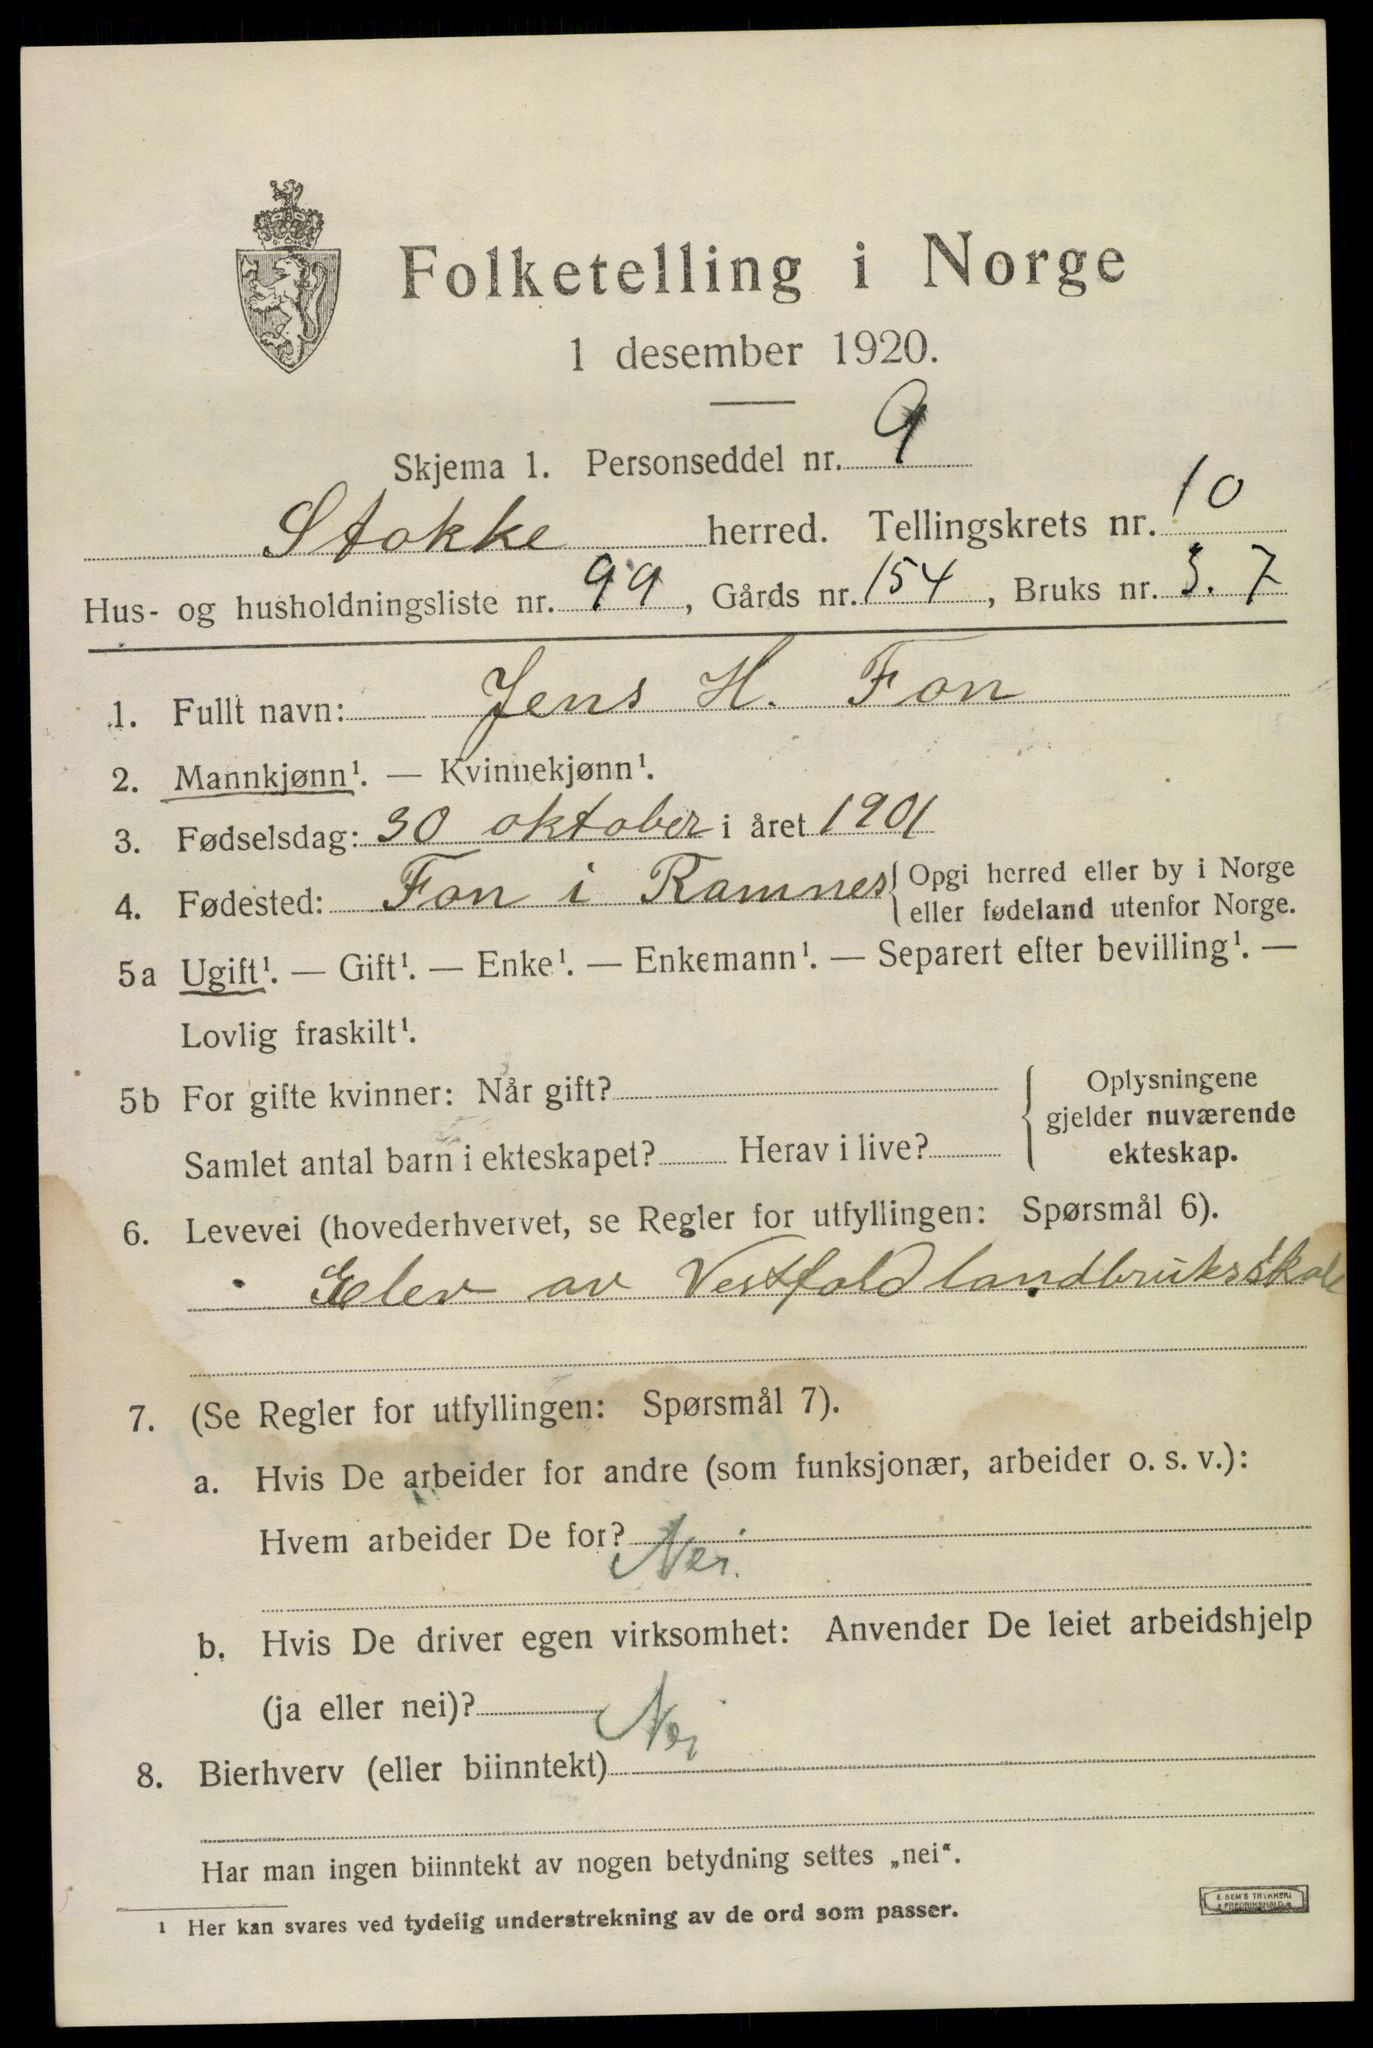 Folketelling i Norge
1 desember 1920.
Skjema 1. Personseddel nr. 9
Stokke herred. Tellingskrets nr. 10
Hus- og husholdningsliste nr. 99, Gårds nr. 154, Bruks nr. 3. 7
1. Fullt navn: Jens H. Fon
2. Mannkjønn¹. — Kvinnekjønn¹.
3. Fødselsdag: 30 oktober i året 1901
4. Fødested: Fon i Ramnes { Opgi herred eller by i Norge
eller fødeland utenfor Norge.
5a Ugift¹. — Gift¹. — Enke¹. — Enkemann¹. — Separert efter bevilling¹. —
Lovlig fraskilt¹.
5b For gifte kvinner: Når gift?
Samlet antal barn i ekteskapet? Herav i live?
{ Oplysningene
gjelder nuværende
ekteskap.
6. Levevei (hovederhvervet, se Regler for utfyllingen: Spørsmål 6).
Elev av Vestfold landbruksskole
7. (Se Regler for utfyllingen: Spørsmål 7).
a. Hvis De arbeider for andre (som funksjonær, arbeider o. s. v.):
Hvem arbeider De for? Nei.
b. Hvis De driver egen virksomhet: Anvender De leiet arbeidshjelp
(ja eller nei)? Nei
8. Bierhverv (eller biinntekt)
Har man ingen biinntekt av nogen betydning settes „nei“.
¹ Her kan svares ved tydelig understrekning av de ord som passer.
E SEM'S TRYKKERI
FREDRIKSHALD